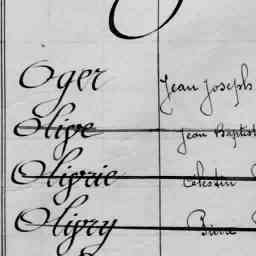 Oger Jean Joseph
Olive Jean Baptist
Olivrie Célestin
Olivry Pierre